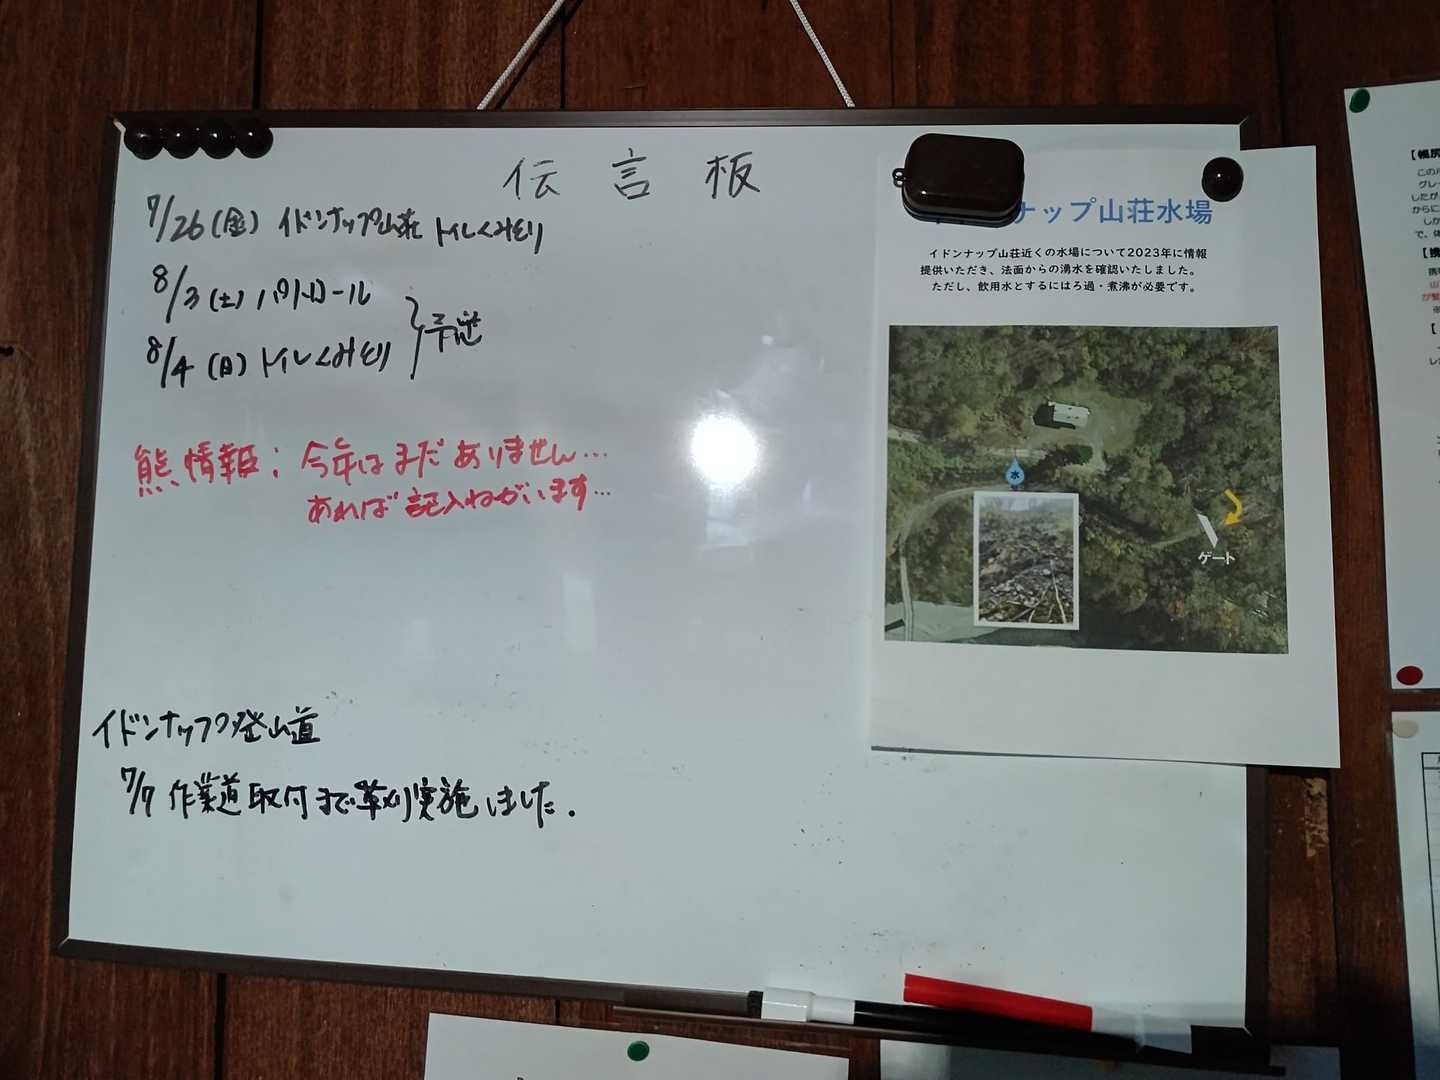 伝言板
7/26(金) イドンナップ山荘 トイレくみとり
8/3(土) パトロール
8/4(日) トイレくみとり
予定
熊情報: 今年はまだありません...
あれば記入ねがいます...
イドンナップ登山道
7/7 作業道取付まで草刈実施しました.
ナップ山荘水場
イドンナップ山荘近くの水場について2023年に情報
提供いただき、法面からの湧水を確認いたしました。
ただし、飲用水とするにはろ過・煮沸が必要です。
水
ゲート